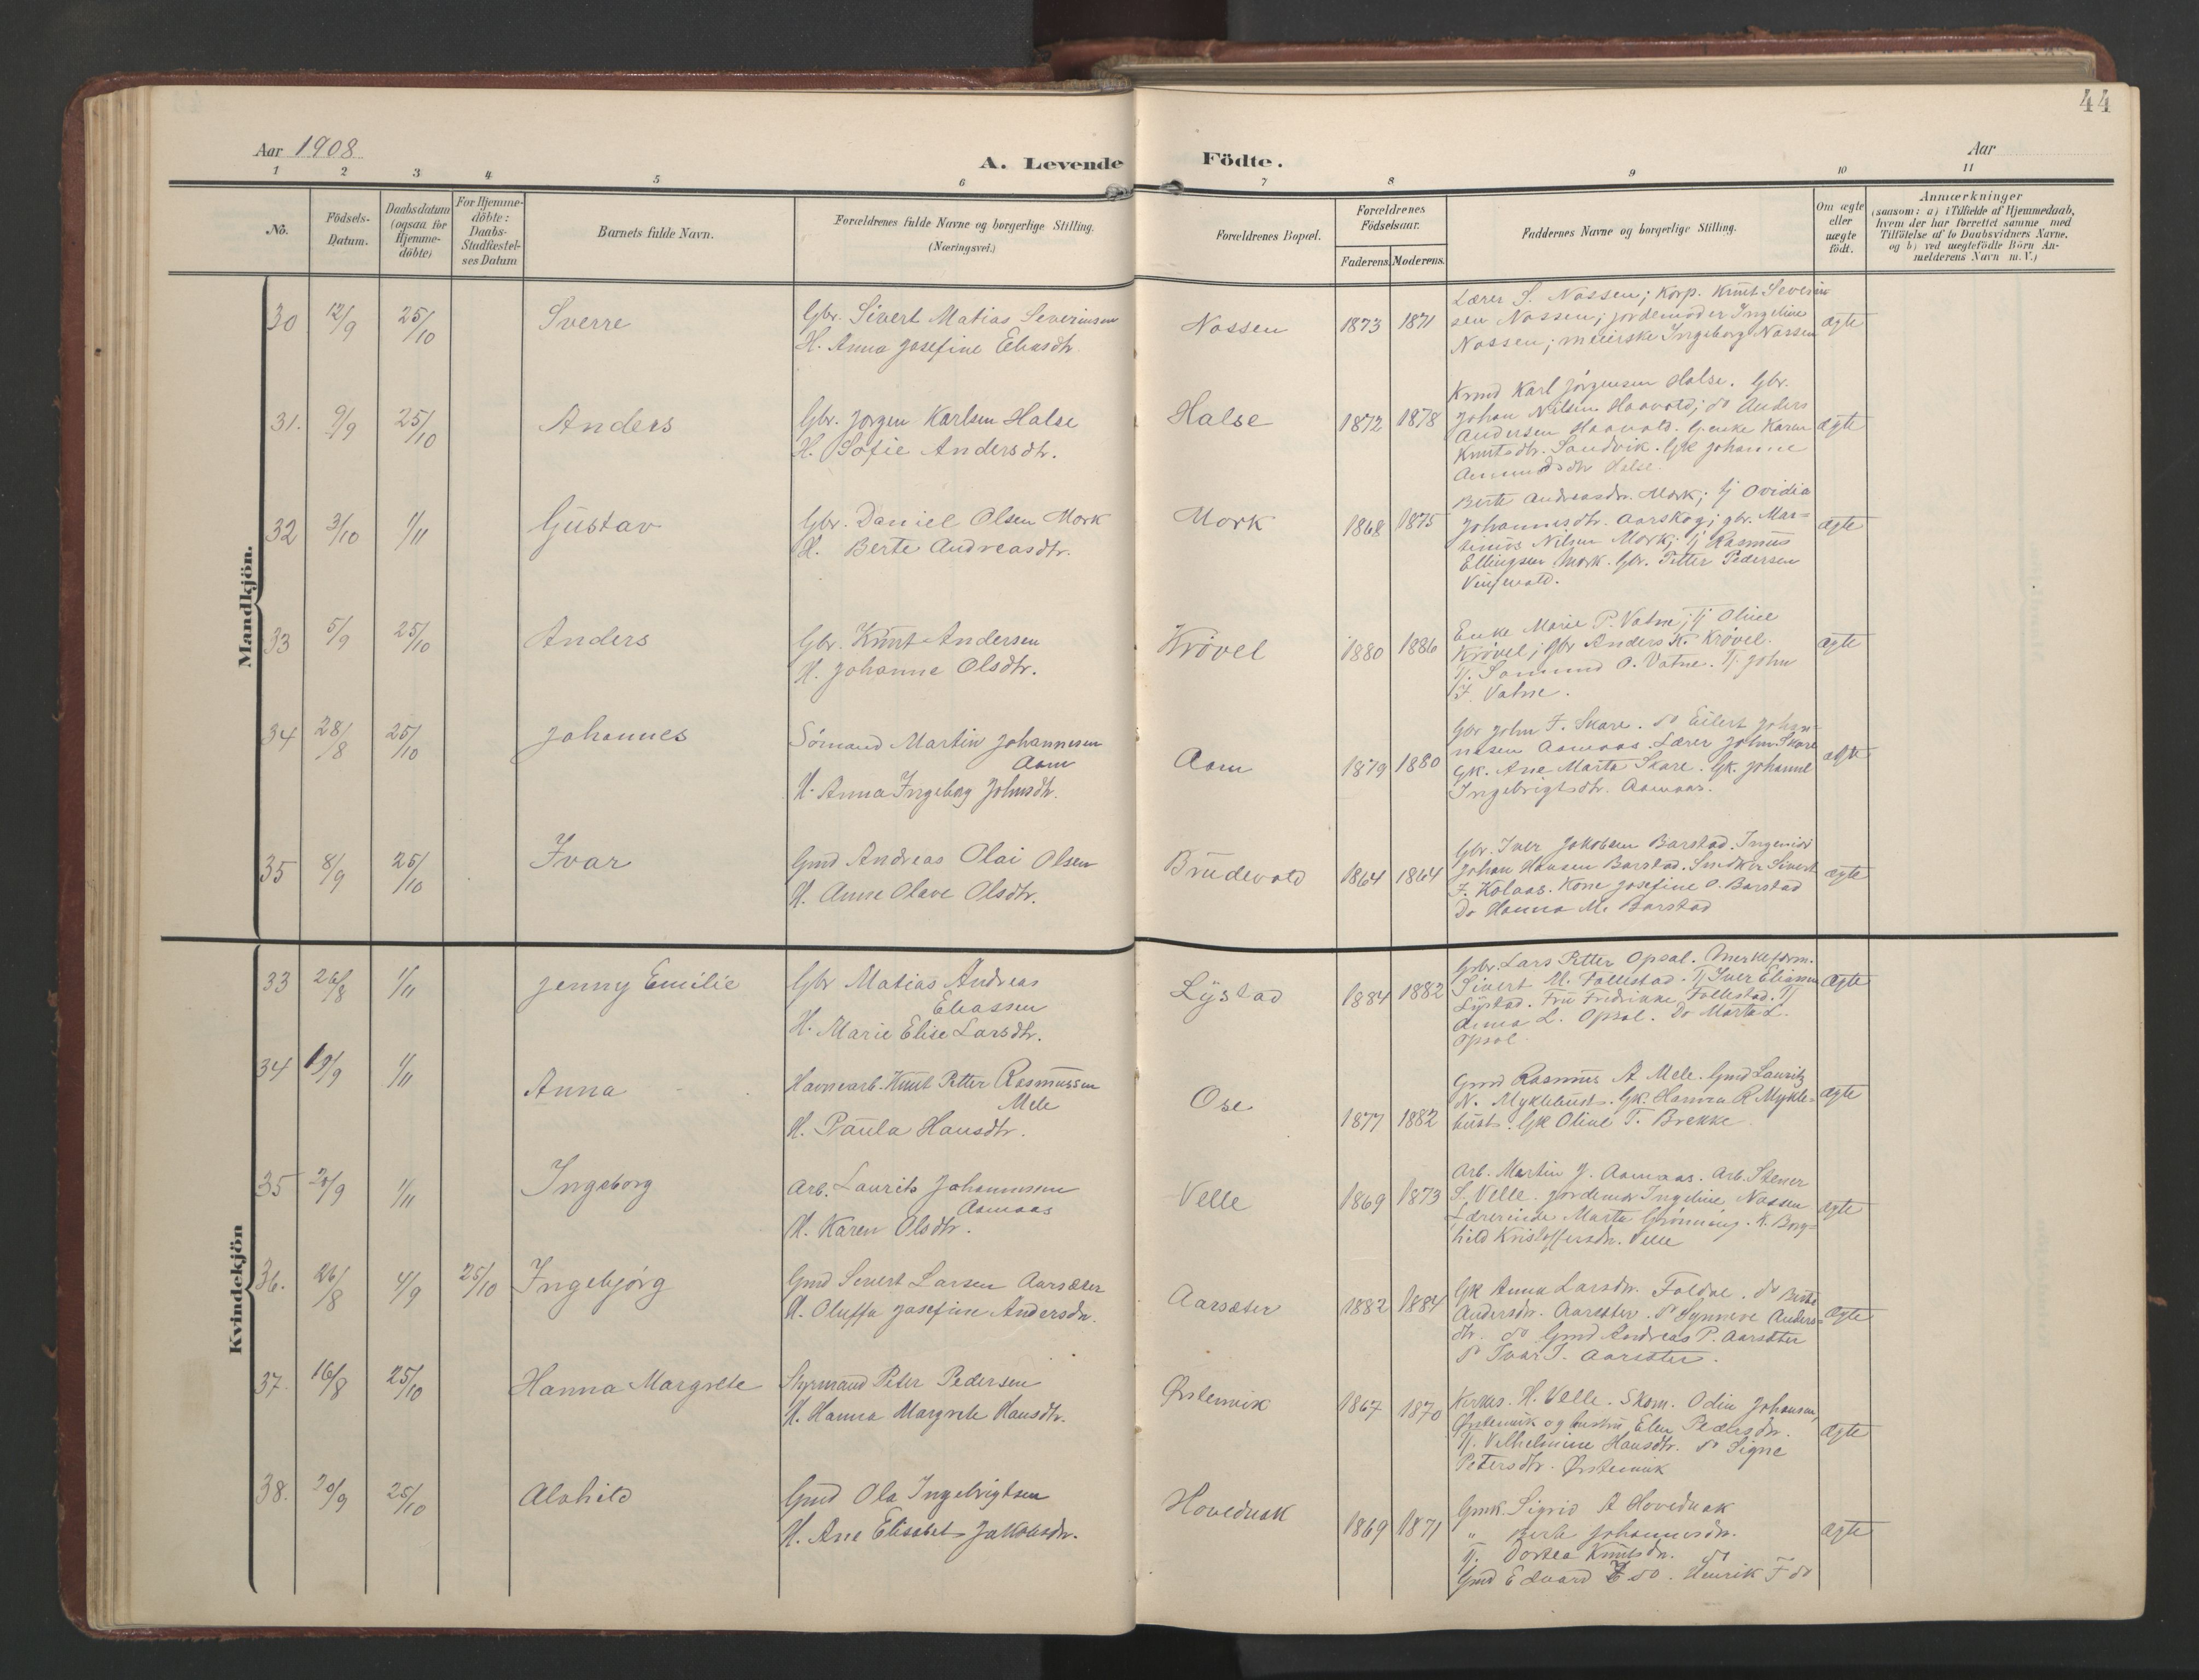 44
Aar 1908
A. Levende Födte.
Aar
1 2 3 4 5 6 7 8 9 10 11
No.
Födsels-
Datum.
Daabsdatum
(ogsaa for
Hjemme-
döbte)
For Hjemme-
döbte:
Daabs-
Stadfæstel-
ses Datum
Barnets fulde Navn.
Forældrenes fulde Navne og borgerlige Stilling.
(Næringsvei.)
Forældrenes Bopæl.
Forældrenes
Födselsaar.
Faderens. Moderens.
Faddernes Navne og borgerlige Stilling.
Om ægte
eller
uægte
födt.
Anmærkninger
(saasom: a) i Tilfælde af Hjemmedaab,
hvem der har forrettet samme med
Tilföielse af to Daabsvidners Navne,
og b) ved uægtefödte Börn An-
melderens Navn m. V.)
Mandkjön.
30 12/9 25/10 Sverre
Gbr. Sivert Matias Severinsen
H. Anna Josefine Eliasdtr.
Nossen 1873 1871
Lærer S. Nossen; Korp. Knut Severin
sen Nossen; jordemoder Ingeline
Nossen; meierske Ingeborg Nossen
ægte
31. 9/9 25/10 Anders
Gbr. Jørgen Karlsen Halse
H. Sofie Andersdtr.
Halse 1872 1878
Kmd Karl Jørgensen Halse. Gbr.
Johan Nilsen Haavold; do Anders
Andersen Haavold. G.enke Karen
Knutsdtr. Sandvik. Gk Johanne
Amundsdtr Halse.
ægte
32 3/10 1/11 Gustav
Gbr. Daniel Olsen Mork
H. Berte Andreasdtr.
Mork 1868 1875
Berte Andreasdr. Mork; Tj Ovidia
Johannesdtr. Aarskog; gbr. Mar=
tinus Nilsen Mork; Tj Rasmus
Ellingsen Mork. Gbr. Petter Pedersen
ægte
33 5/9 25/10 Anders
Gbr. Knut Andersen
H. Johanne Olsdtr.
Krövel 1880 1886
Enke Marie P. Vatne; Tj Oline
Krövel; Gbr Anders K. Krövel.
Tj. Samund O. Vatne. Tj. John
J. Vatne.
ægte
34 28/8 25/10 Johannes
Sömand Martin Johannesen
Aam
H. Anna Ingeborg Johnsdtr.
Aam 1879 1880
Gbr John F. Skare. do Eilert Johan=
nesen Aamaas. Lærer John Skare
Gk. Ane Marta Skare. Gk. Johanne
Ingebrigtsdtr. Aamaas.
ægte
35 8/9 25/10 Ivar
Gmd Andreas Olai Olsen
H. Anne Olave Olsdtr.
Brudevold 1864 1864
Gbr. Iver Jakobsen Barstad. Ingeniör
Johan Hansen Barstad. Snedker Sivert
J. Kolaas. Kone Josefine O. Barstad
Do Hanna M. Barstad
ægte
Kvindekjön
33 26/8 1/11 Jenny Emilie
Gbr Matias Andreas
Eliassen
H. Marie Elise Larsdtr.
Lystad 1884 1882
Gbr. Lars Petter Opsal.
Sivert M. Follestad. Tj Iver Eliassen
Lystad. Fru Fredrikke Follestad. Tj
Anna L. Opsal. Do Marta L.
Opsal
ægte
34 19/9 1/11 Anna
Havnearb. Knut Petter Rasmussen
Mele
H. Paula Hansdtr.
Ose 1877 1882
Gmd Rasmus A Mele. Gmd Lauritz
N. Myklebust. Gk. Hanna R Mykle=
bust. Gk Oline T. Brekke
ægte
35 20/9 1/11 Ingeborg
Arb. Laurits Johannessen
Aamaas
H. Karen Olsdtr.
Velle 1869 1873
Arb. Martin J. Aamaas. Arb. Stener
S. Velle. Jordemor Ingeline Nossen
Lærerinde Marta Grönning. K. Borg=
hild Kristoffersdr. Velle
ægte
36. 26/8 4/9 25/10 Ingebjörg
Gmd Sivert Larsen Aarsæter
H. Oluffa Josefine Andersdr.
Aarsæter 1882 1884
Gk Anna Larsdr. Foldal. do Berte
Andersdr. Aarsæter. do Synneve Anders=
dtr. do Gmd Andreas P. Aarsæter
do Ivar J. Aarsæter.
ægte
37. 16/8 25/10 Hanna Margrete
Styrmand Peter Pedersen
H. Hanna Margrete Hansdtr.
Ørstenvik 1867 1870
Kirkes. H. Velle. Skom. Odin Johansen,
Ørstenvik og hustru Elen Pedersdr.
Tj. Vilhelmine Hansdtr. do Signe
Petersdtr. Ørstenvik
ægte
38. 20/9 25/10 Alvhild
Gmd Ola Ingebrigtsen
H. Ane Elisabet Jakobsdr.
Hovednak 1869 1871
Gmk. Sigrid A Hovednak
" Berte Johannesdr.
Tj. Dortea Knutsdr. do
Gmd Edvard do. Henrik F do
ægte